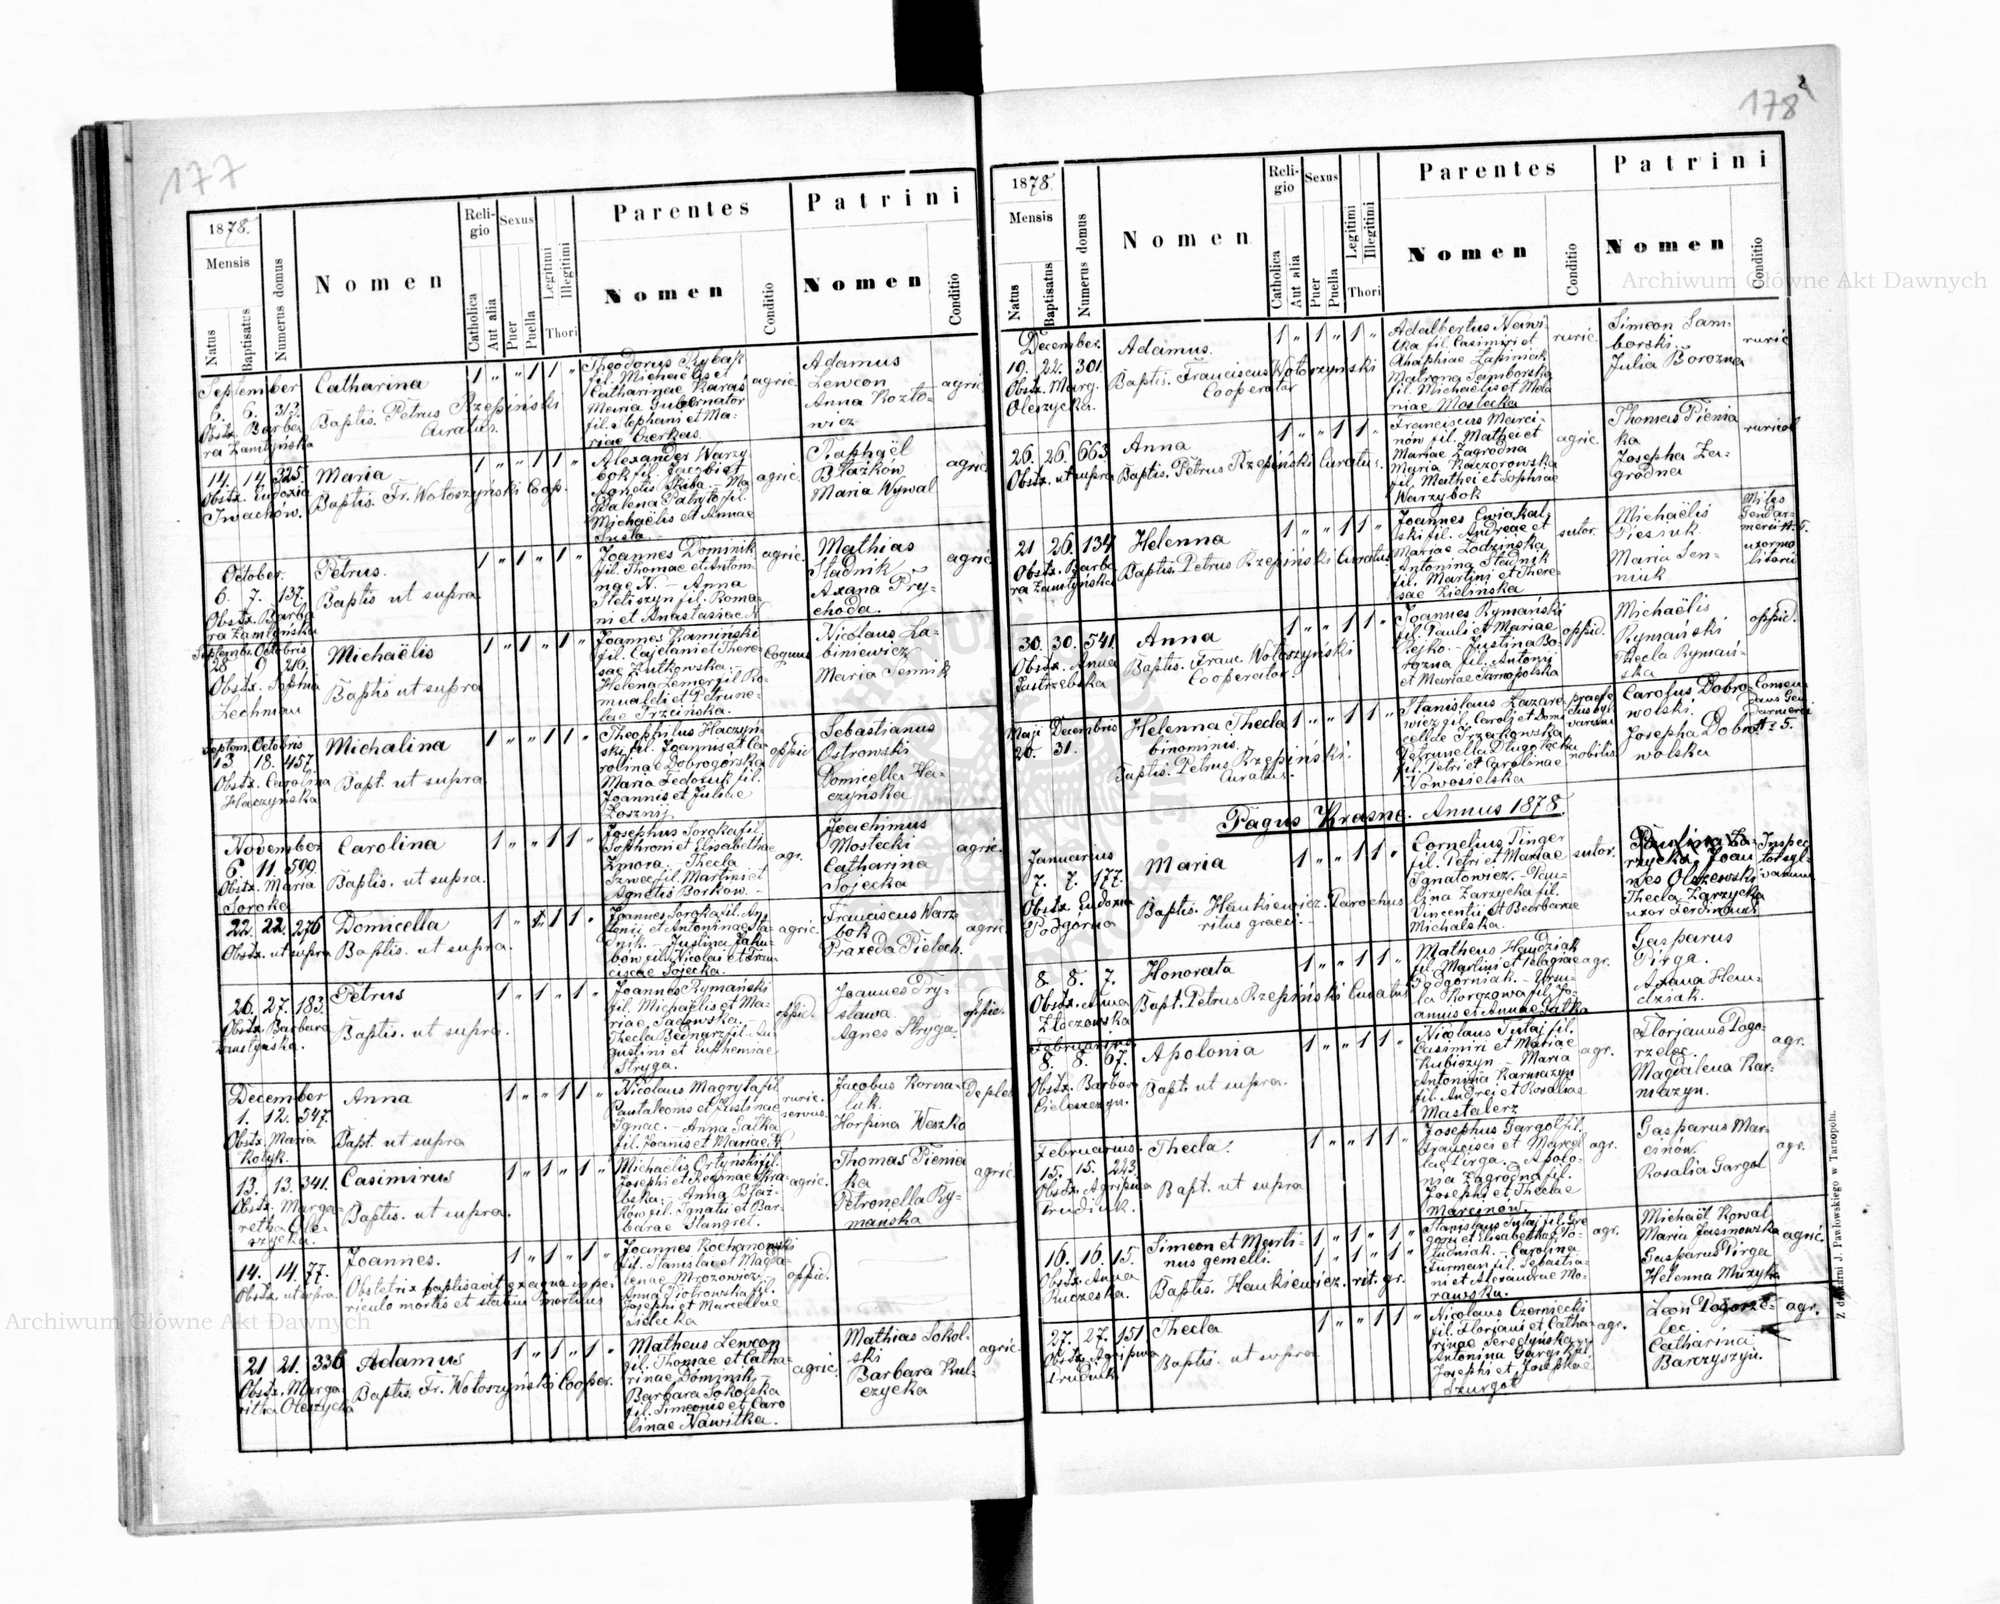 177
1878.
Mensis
Natus
Baptisatus
Numerus domus
Nomen
Religio
Catholica
Aut alia
Sexus
Puer
Puella
Legitimi
Illegitimi
Thori
Parentes
Nomen
Conditio
Patrini
Nomen
Conditio
September
6. 6. 313.
Obstx. Barba
ra Zamłyńska
Catharina
Baptis. Petrus Rzepiński
Curatus.
1 " " 1 1 "
Theodorus Rybak
fil. Michaelis et
Catharinae Karaś
Maria Gubernator
fil. Stephani et Ma-
riae Czerkas.
agric.
Adamus
Lewcon
Anna Kozło-
wicz
agric.
14. 14. 325.
Obstx. Eudoxia
Iwachów.
Maria
Baptis. Fr. Wołoszyński Coop.
1 " " 1 1 "
Alexander Warzy
bok fil. Jacobi et
Agnetis Skiba. - Ma
gdalena
Michaëlis et Annae
agric.
Raphaël
Błażkow
Maria Wywal
agric.
October.
6. 7. 137.
Obstx. Barba
ra Zamłyńska
Petrus.
Baptis ut supra.
1 " 1 " 1 "
Joannes Dominik
fil. Thomae et Anton
nae N. - Anna
Steliszyn fil. Roma-
ni et Anastasiae N.
agric.
Mathias
Stadnik
Axana Pry-
choda.
agric.
Septembr. Octobris
28 9 216.
Obstx. Sophia
Lechman
Michaëlis
Baptis ut supra
1 " 1 " 1 "
Joannes Kamiński
fil. Cajetani et There-
sae Zutkowska.
Helena Lemer fil. Ro-
mualdi et Petrune-
lae Trzcińska.
Coquus
Nicolaus La-
biniewicz
Maria Sennik
Septem. Octobris
13 18. 457.
Obstx. Carolina
Haczyńska
Michalina
Bapt. ut supra.
1 " " 1 1 "
Theophilus Haczyń-
ski fil. Joannis et Ca-
rolinae Dobrogorska
Maria Fedoruk fil.
Joannis et Juliae
oppid
Sebastianus
Ostrowski
Domicella Ha-
czyńska
November
6. 11. 599.
Obstx. Maria
Soroka
Carolina
Baptis. ut supra.
1 " " 1 1 "
Josephus Soroka fil.
Sophroni et Elisabethae
Zmora. - Thecla
Szwec fil. Martini et
Agnetis Borkow. -
agr.
Joachimus
Mostecki
Catharina
Sojecka
agric.
22. 22. 276
Obstx. ut supra
Domicella
Baptis. ut supra.
1 " 1 1 "
Joannes Soroka fil. An
tonii et Antoninae Sta-
dnik. - Justina Jaku-
bów fil. Nicolai et Fran-
ciscae Sojecka.
agric.
Franciscus Warz-
bok
Praxeda Pielach.
agric.
26. 27. 183.
Obstx. Barbara
Zamłyńska.
Petrus
Baptis. ut supra.
1 " 1 " 1 "
Joannes Rymański
fil. Michaëlis et Ma-
riae Sadowska.
Thecla Bednarz fil. Au-
gustini et Euphemiae
Stryga.
oppid.
Joannes Pry-
stawa.
Agnes Stryga.
oppid.
December
1. 12. 547.
Obstx. Maria
Kotyk.
Anna
Bapt. ut supra
1 " " 1 1 "
Nicolaus Magryta fil
Pantaleonis et Justinae
Ignac. - Anna Salka
fil. Joanis et Mariae N.
ruric.
servus.
Jacobus Korma-
luk.
Horpina Weszko
13. 13. 341.
Obstx. Marga-
retha Ole-
szycka.
Casimirus
Baptis. ut supra.
1 " 1 " 1 "
Michaëlis Ortyński fil.
Josephi et Reginae Skra-
bska. - Anna Błaż-
ków fil. Ignatii et Bar-
barae Stangret.
agric.
Thomas Pienia
ka
Petronella Ry-
mańska
agric.
14. 14. 77.
Obstx. ut supra.
Joannes.
Obstetrix baptisavit ex aqua in pe-
riculo mortis et statim mortuus
1 " 1 " 1 "
Joannes Kochanowski
fil. Stanislai et Magda-
lenae Mrozowicz.
Anna Piotrowska fil.
Josephi et Marcellae
Sielecka
oppid.
21 21. 336
Obstx. Marga-
ritha Oleszycka
Adamus
Baptis. Fr. Wołoszyński Cooper.
1 " 1 " 1 "
Matheus Lewcon
fil. Thomae et Catha-
rinae Dominik
Barbara Sokolska
fil. Simeonis et Caro
linae Nawitka.
agric.
Mathias Sokol-
ski
Barbara Kul-
czycka
agric.
178
1878.
Mensis
Natus
Baptisatus
Numerus domus
Nomen
Religio
Catholica
Aut alia
Sexus
Puer
Puella
Legitimi
Illegitimi
Thori
Parentes
Nomen
Conditio
Patrini
Nomen
Conditio
December.
19. 22. 301.
Obstx. Marg.
Oleszycka.
Adamus.
Baptis. Franciscus Wołoszyński
Cooperator
1 " 1 " 1 "
Adalbertus Nawi-
tka fil. Casimiri et
Ahaphiae Łapiniak
Matrona Samborska
fil. Michaëlis et Mela
niae Mostecka
ruric.
Simeon Sam-
borski.
Julia Borozna
ruric.
26. 26. 663.
Obstx. ut supra
Anna
Baptis. Petrus Rzepiński Curatus.
1 " " 1 1 "
Franciscus Marci-
nów fil. Mathei et
Mariae Zagrodna
Maria Kaczorowska
fil. Mathei et Sophiae
Warzybok
agric.
Thomas Pienia
ka
Josepha Za-
grodna
21 26. 134
Obstx. Barba
ra Zamłyńska
Helenna
Baptis. Petrus Rzepiński Curatus.
1 " " 1 1 "
Joannes Cwiakal-
ski fil. Andreae et
Mariae Lodzinska
Antonina Stadnik
fil. Martini et There-
sae Zielińska
sutor.
Michaëlis
Piesiuk.
Maria Sen-
niuk
Miles
Gendar-
meria № 5.
uxor mi
litaris
30. 30. 541.
Obstx. Anna
Jastrzebska
Anna
Baptis. Franc Wołoszyński
Cooperator
1 " " 1 1 "
Joannes Rymański
fil. Pauli et Mariae
Pejko. - Justina Bo-
rozna fil. Antoni
et Mariae Tarnopolska
oppid.
Michaëlis
Rymański
Thecla Rymań-
ska
oppid.
Maji Decembris
20. 31.
Helenna Thecla
binominis.
Baptis. Petrus Rzepiński.
Curatus.
1 " " 1 1 "
Stanislaus Lazare
wicz fil. Caroli et Domi
cellae Trzakowska
Petrunella Długołecka
fil. Petri et Carolinae
Nowosielska
praefe
ctus syl-
varum
nobilis
Carolus Dobro-
wolski.
Josepha Dobro-
wolska
№ 5.
Pagus Krasne. Annus 1878.
Januarius
7. 7. 177.
Obstx. Eudoxia
Podgórna
Maria
Baptis. Hankiewicz. Parochus
ritus graeci.
1 " " 1 1 "
Cornelius Pinger
fil. Petri et Mariae
Ignatowicz. - Pau-
lina Zarzycka fil.
Vincentii et Barbarae
Michalska.
sutor.
Paulina Za-
rzycka, Joan
nes Olszewski
Thecla Zarzycka
uxor Ferdinandi
Inspec
tor syl-
varum
8. 8. 7.
Obstx. Anna
Złoczowska
Honorata
Bapt. Petrus Rzepiński Curatus
1 " " 1 1 "
Matheus Handziak
fil. Martini et Pelagiae
Podgórniak. - Ursu-
la Korozowa fil. Jo-
annis et Annae Salka
agr.
Gasparus
Pirga.
Axana Han-
dziak.
Februarius
8. 8. 67.
Obstx. Barbara
Cieleszczyn.
Apolonia
Bapt. ut supra.
1 " " 1 1 "
Nicolaus Tutaj fil.
Casimiri et Mariae
Kubiszyn - Maria
Antonina Karmazyn
fil. Andrei et Rosaliae
Mastalerz
agr.
Florjanus Pogo-
rzelec.
Magdalena Kar-
mazyn.
agr.
Februarius.
15. 15. 243.
Obstx. Agripina
Prudiuk.
Thecla.
Bapt. ut supra
1 " " 1 1 "
Josephus Gargol fil.
Francisci et Marcel
lae Pirga. - Apolo-
nia Zagrodna fil.
Josephi et Theclae
Marcinów.
agr.
Gasparus Mar-
cinów.
Rosalia Gargol
agr.
16. 16. 15.
Obstx. Anna
Kuczeska.
Simeon et Marti-
nus gemelli.
Baptis. Hankiewicz. rit. gr.
1 " 1 " 1 "
1 " 1 " 1 "
Stanislaus Tutaj fil. Gre
gorii et Elisabethae Po-
łudniak. - Carolina
Furman fil. Sebastia-
ni et Alexandrae Mo-
rawska.
agr.
Michaël Kowal
Maria Jasinowska
Gasparus Pirga
Helenna Muzyka
agric.
27. 27. 151
Obstx. Agripina
Prudiuk.
Thecla
Baptis. ut supra
1 " " 1 1 "
Nicolaus Czerniecki
fil. Floriani et Catha-
rinae Seredyńska
Antonina
Josephi et Josephae
Szurgot
agr.
Leon Pogorze-
lec.
Catharina
Barczyszyn.
agr.
Z drukarni J. Pawłowskiego w Tarnopolu.
Archiwum Główne Akt Dawnych
Archiwum Główne Akt Dawnych